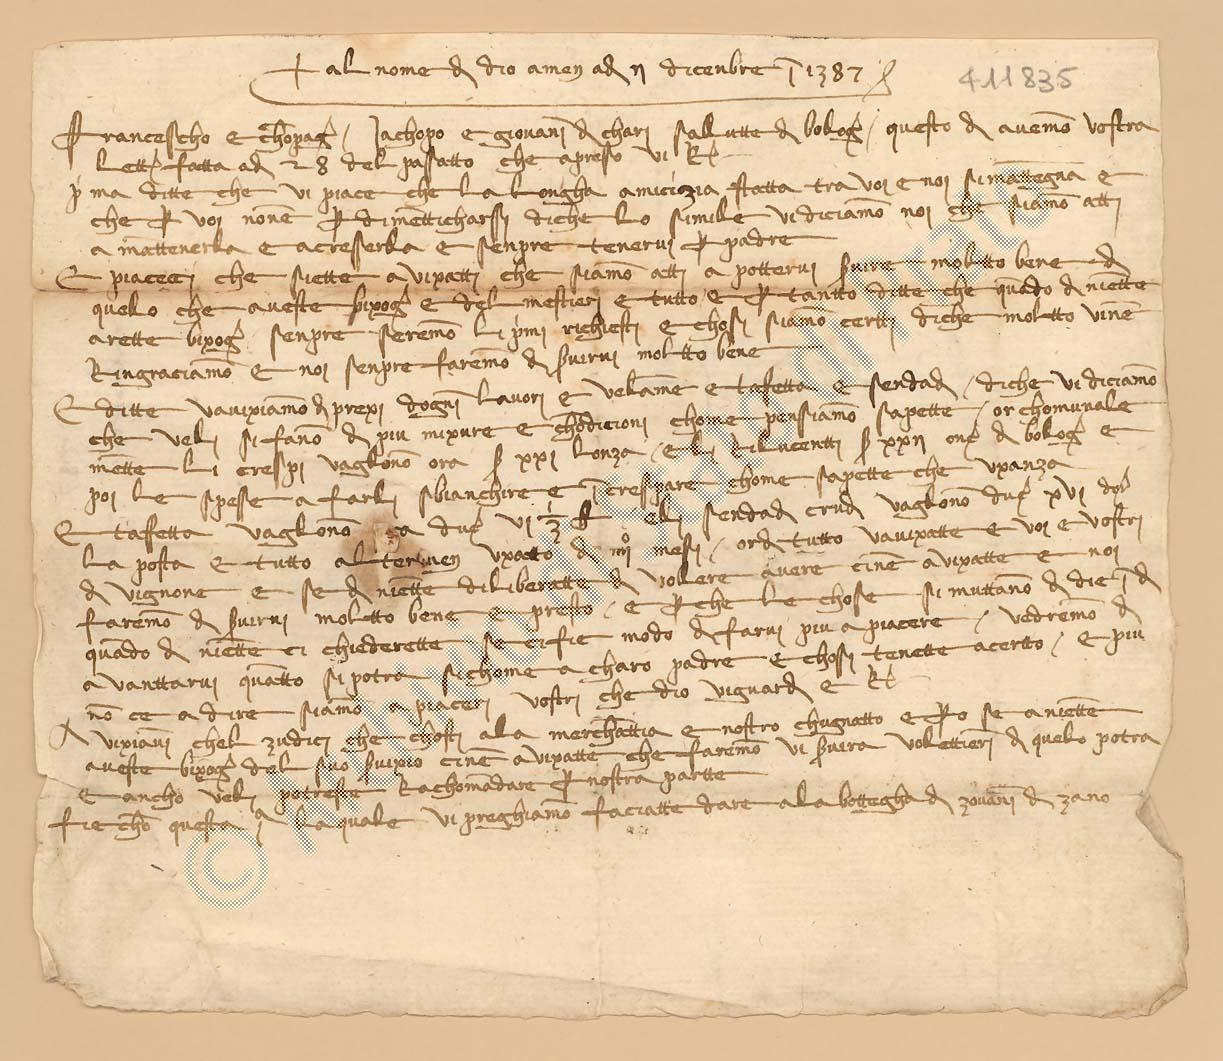 + al nome d dio amen ad II dicenbre 1387
411835
Francescho e chopag / Jachopo e giovani d chari sallutte d bolog / questo d avemo vostra
lettr fatta ad 28 del passatto che apresso vi
pma ditte che vi piace che la longha amicizia statta tra voi e noi si mattegna e
che p voi none p dimetticharssi diche lo simile vi diciamo noi che siamo atti
a mattenerla e acresserla e senpre tenervi p padre
E piaceci che siette avixatti che siamo atti a pottervi svire moltto bene ad
quelo che aveste bixog e del mestieri e tutto e p tantto ditte che quado d niette
arette bixog senpre seremo li pmi richiesti e chosi siamo certti diche moltto vine
Ringraciamo e noi senpre faremo d svirvi moltto bene
E ditte vavixiamo d prexi dogni lavori e velame e taffetta e sendad / diche vi diciamo
che veli si fano d piu mixure e chodicioni chome pensiamo sapette / or chomunale
mette li crespi vaglono ora s xxi lonza / e li rilucentti s xxii onc d bolog e
poi le spesse a farli sbianchire e increspare chome sapette che uxanza
E taffetta vaglono duc vi 1/2 eli sendad crud vaglono duc xvi dor
la posta e tutto al termen uxatto d iiii mesi / ord tutto vavixatte e voi e vostri
d vignone e se d niette diliberatte d vollere avere cine avixatte e noi
faremo d svirvi moltto bene e presto / e p che le chose si muttano d die i d
quado d niette ci chiederette se ci fie modo d farvi piu a piacere / vedremo d
avanttarvi quatto si potra sichome a charo padre e chosi tenette acertto / e piu
no ce a dire siamo a piaceri vostri che dio vi guard e
A vixiani chel zudici che chosti ala merchattia e nostro chugnatto e po se a niette
aveste bixog del suo svixio cine avixatte che faremo vi svira volettieri d quelo potra
e ancho veli potreste Rachomadare p nostra partte
fie cho questa la quale vi preghiamo faciatte dare ala bottegha d zovani d zano